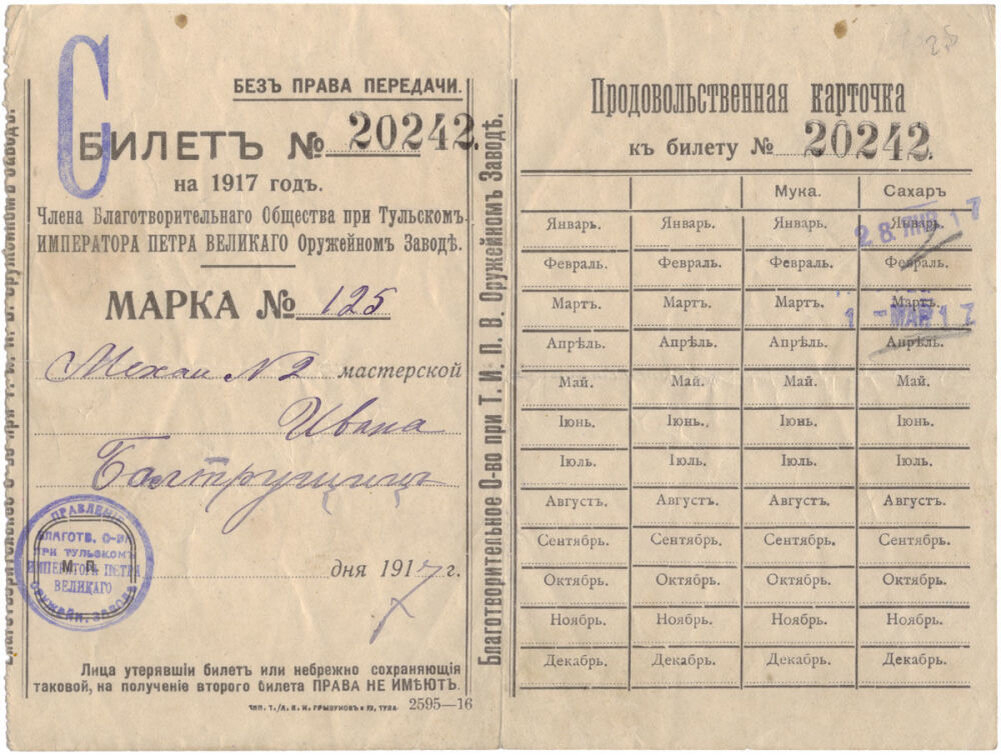 С
БЕЗЪ ПРАВА ПЕРЕДАЧИ.
БИЛЕТЪ № 20242.
на 1917 годъ.
Члена Благотворительнаго Общества при Тульскомъ
ИМПЕРАТОРА ПЕТРА ВЕЛИКАГО Оружейномъ Заводѣ.
МАРКА № 125
Механ №2 мастерской
Ивана
М. П.
дня 1917 г.
ПРАВЛЕНІЕ
БЛАГОТВ. О-ВА
ПРИ ТУЛЬСКОМЪ
ИМПЕРАТОРА ПЕТРА
ВЕЛИКАГО
ОРУЖЕЙН. ЗАВОДѢ
Лица утерявшіи билетъ или небрежно сохраняющія
таковой, на полученіе второго билета ПРАВА НЕ ИМѢЮТЪ.
2595—16
Благотворительное О-во при Т. И. П. В. Оружейномъ Заводѣ.
Продовольственная карточка
къ билету № 20242.
Мука. Сахаръ
Январь. Январь. Январь. Январь.
28 ЯНВ 17
Февраль. Февраль. Февраль. Февраль.
Мартъ. Мартъ. Мартъ. Мартъ.
1 - МАР 17
Апрѣль. Апрѣль. Апрѣль. Апрѣль.
Май. Май. Май. Май.
Іюнь. Іюнь. Іюнь. Іюнь.
Іюль. Іюль. Іюль. Іюль.
Августъ. Августъ. Августъ. Августъ.
Сентябрь. Сентябрь. Сентябрь. Сентябрь.
Октябрь. Октябрь. Октябрь. Октябрь.
Ноябрь. Ноябрь. Ноябрь. Ноябрь.
Декабрь. Декабрь. Декабрь. Декабрь.